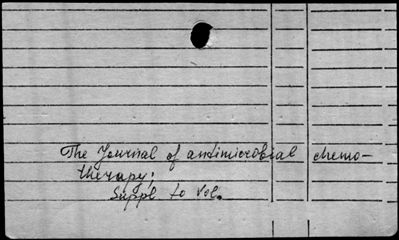 The Journal of antimicrobial chemo-
therapy;
Suppl to Vol.